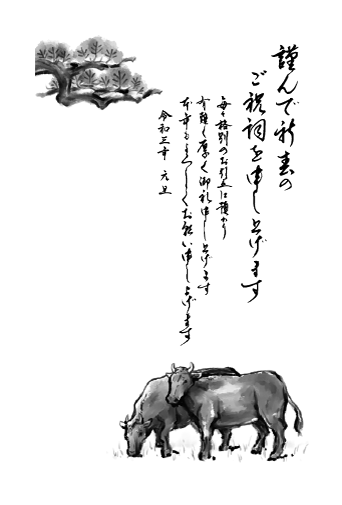 謹んで新春の
ご祝詞を申し上げます
毎々格別のお引立に預かり
有難く厚く御礼申し上げます
本年もよろしくお願い申し上げます
令和三年 元旦